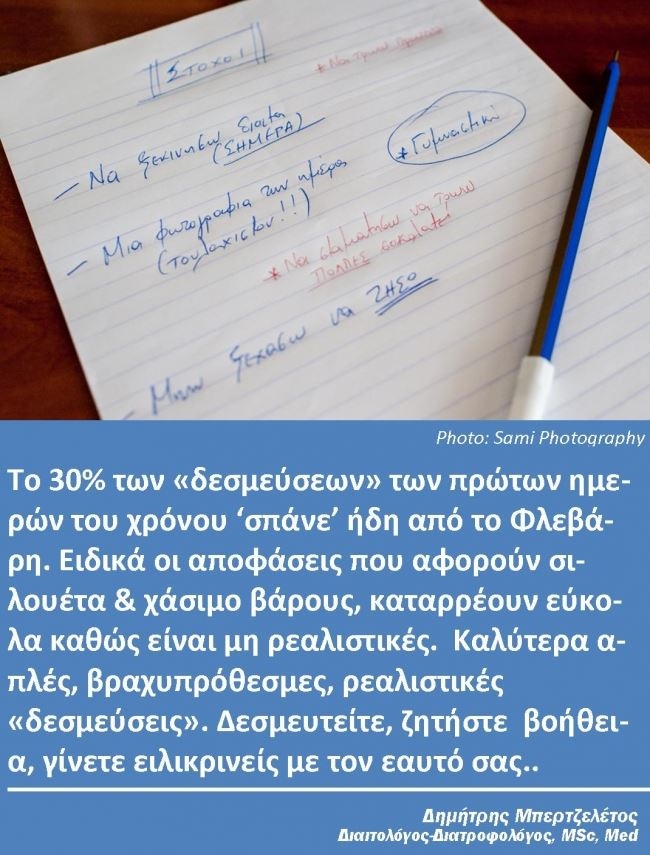 ΣΤΟΧΟΙ
* Να τρώω
– Να ξεκινήσω δίαιτα
(ΣΗΜΕΡΑ)
* Γυμναστική
– Μια φωτογραφία την ημέρα
(τουλάχιστον!!)
* Να σταματήσω να τρώω
ΠΟΛΛΕΣ σοκολάτες
– Μην ξεχάσω να ΖΗΣΩ
Photo: Sami Photography
Το 30% των «δεσμεύσεων» των πρώτων ημε-
ρών του χρόνου ‘σπάνε’ ήδη από το Φλεβά-
ρη. Ειδικά οι αποφάσεις που αφορούν σι-
λουέτα & χάσιμο βάρους, καταρρέουν εύκο-
λα καθώς είναι μη ρεαλιστικές. Καλύτερα α-
πλές, βραχυπρόθεσμες, ρεαλιστικές
«δεσμεύσεις». Δεσμευτείτε, ζητήστε βοήθει-
α, γίνετε ειλικρινείς με τον εαυτό σας..
Δημήτρης Μπερτζελέτος
Διαιτολόγος-Διατροφολόγος, MSc, Med